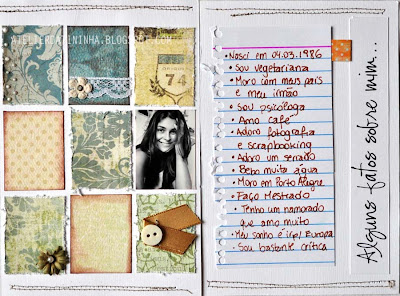 ATELIERCATININHA.BLOGSPOT.COM
ORIGIN
74
• Nasci em 04.03.1986
• Sou vegetariana
• Moro com meus pais
e meu irmão
• Sou psicóloga
• Amo café
• Adoro fotografia
e scrapbooking
• Adoro um seriado
• Bebo muita água
• Moro em Porto Alegre
• Faço Mestrado
• Tenho um namorado
que amo muito
• Meu sonho é ir p/ Europa
• Sou bastante crítica
Alguns fatos sobre mim...